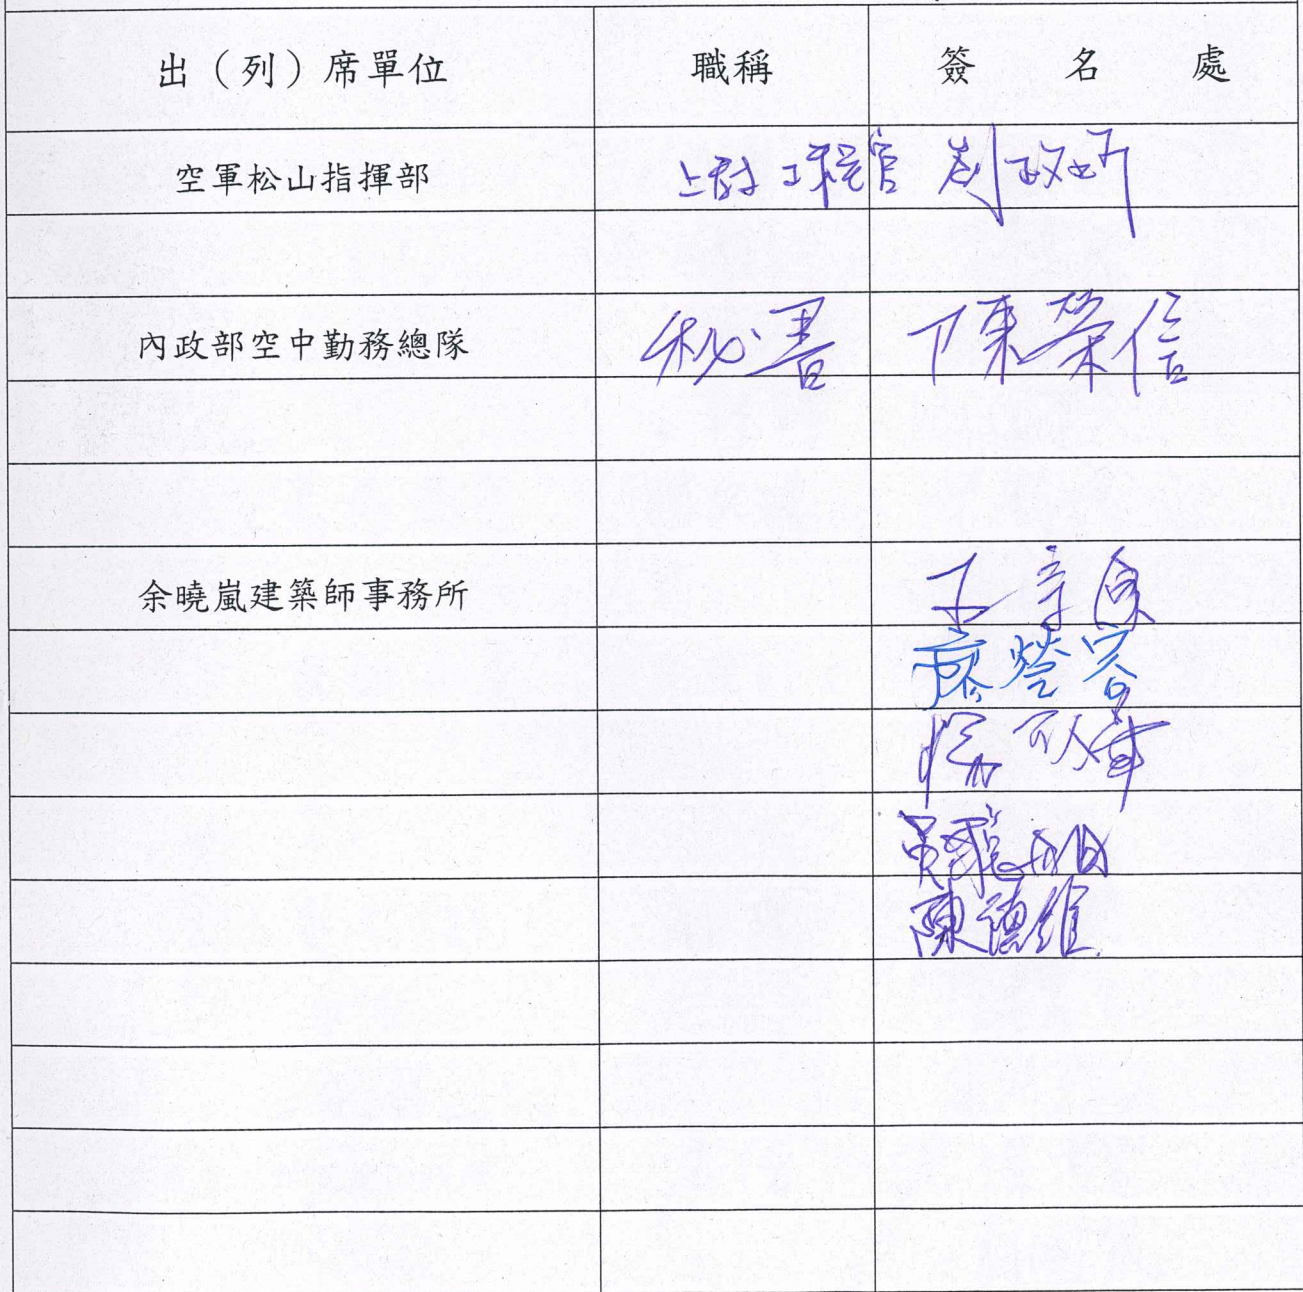 出（列）席單位 職稱 簽名處
空軍松山指揮部 上尉工程官 劉政妍
內政部空中勤務總隊 秘書 陳榮信
余曉嵐建築師事務所 王
廖瑩容
陳德維